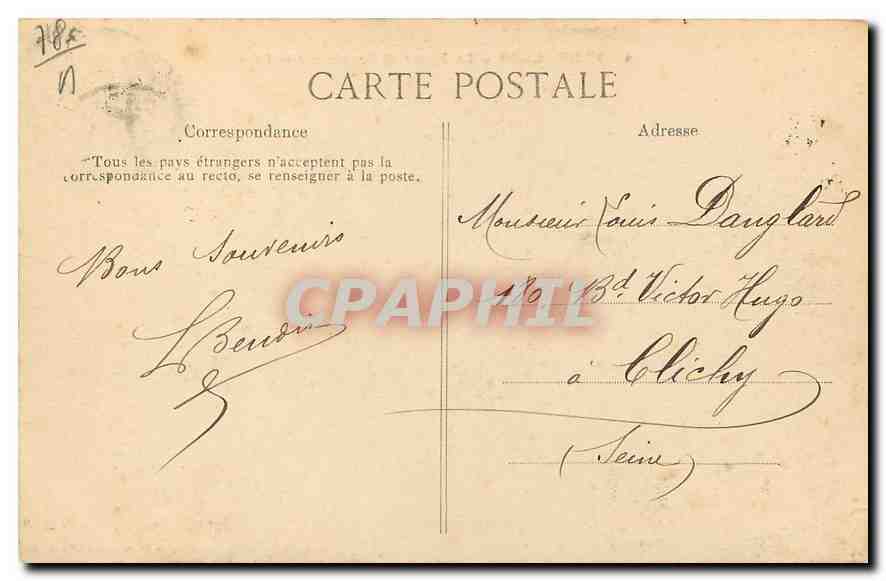 78x
CARTE POSTALE
Correspondance
Tous les pays étrangers n'acceptent pas la
correspondance au recto, se renseigner à la poste.
Bons Souvenirs
Adresse
Monsieur Louis Danglard
180, Bd. Victor Hugo
à Clichy
(Seine)
CPAPHIL